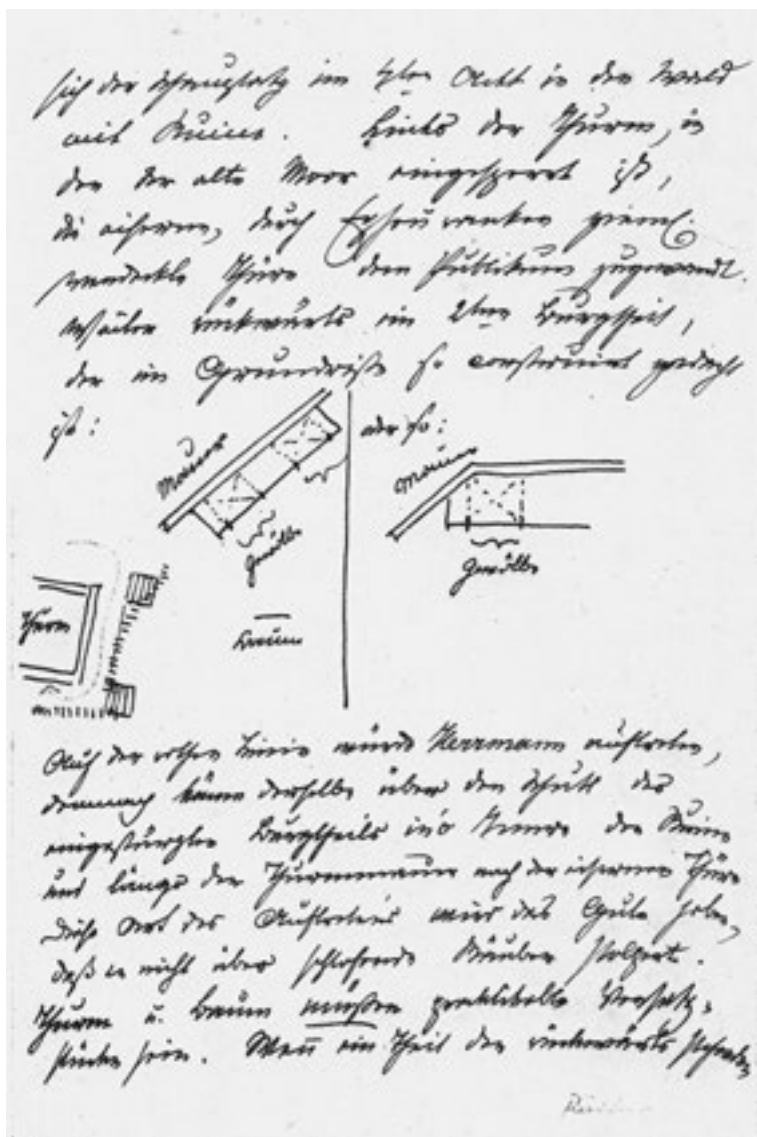 sich der Schauplatz im 4ten Ackt in den Wald
mit Ruine. Links der Thurm, in
den der alte Moor eingesperrt ist,
die eiserne, durch Epheuranken zieml.
verdeckte Thüre dem Publikum zugewandt.
Weiter rückwärts ein 2ter Burgtheil,
der im Grundriße so construirt gedacht
ist:
oder so:
Mauer
Mauer
Gewölbe
Gewölbe
Thurm
Baum
Auf der rothen Linie würde Herrmann auftreten,
demnach käme derselbe über den Schutt des
eingestürzten Burgtheils in's Innere der Ruine
und längs der Thurmmauer nach der eisernen Thüre
Diese Art des Auftretens das Gute
daß er nicht über schlafende Räuber stolpert.
Thurm u. Baum müßen praktikable Versetz-
stücke sein. Wenn ein Theil der rückwärts